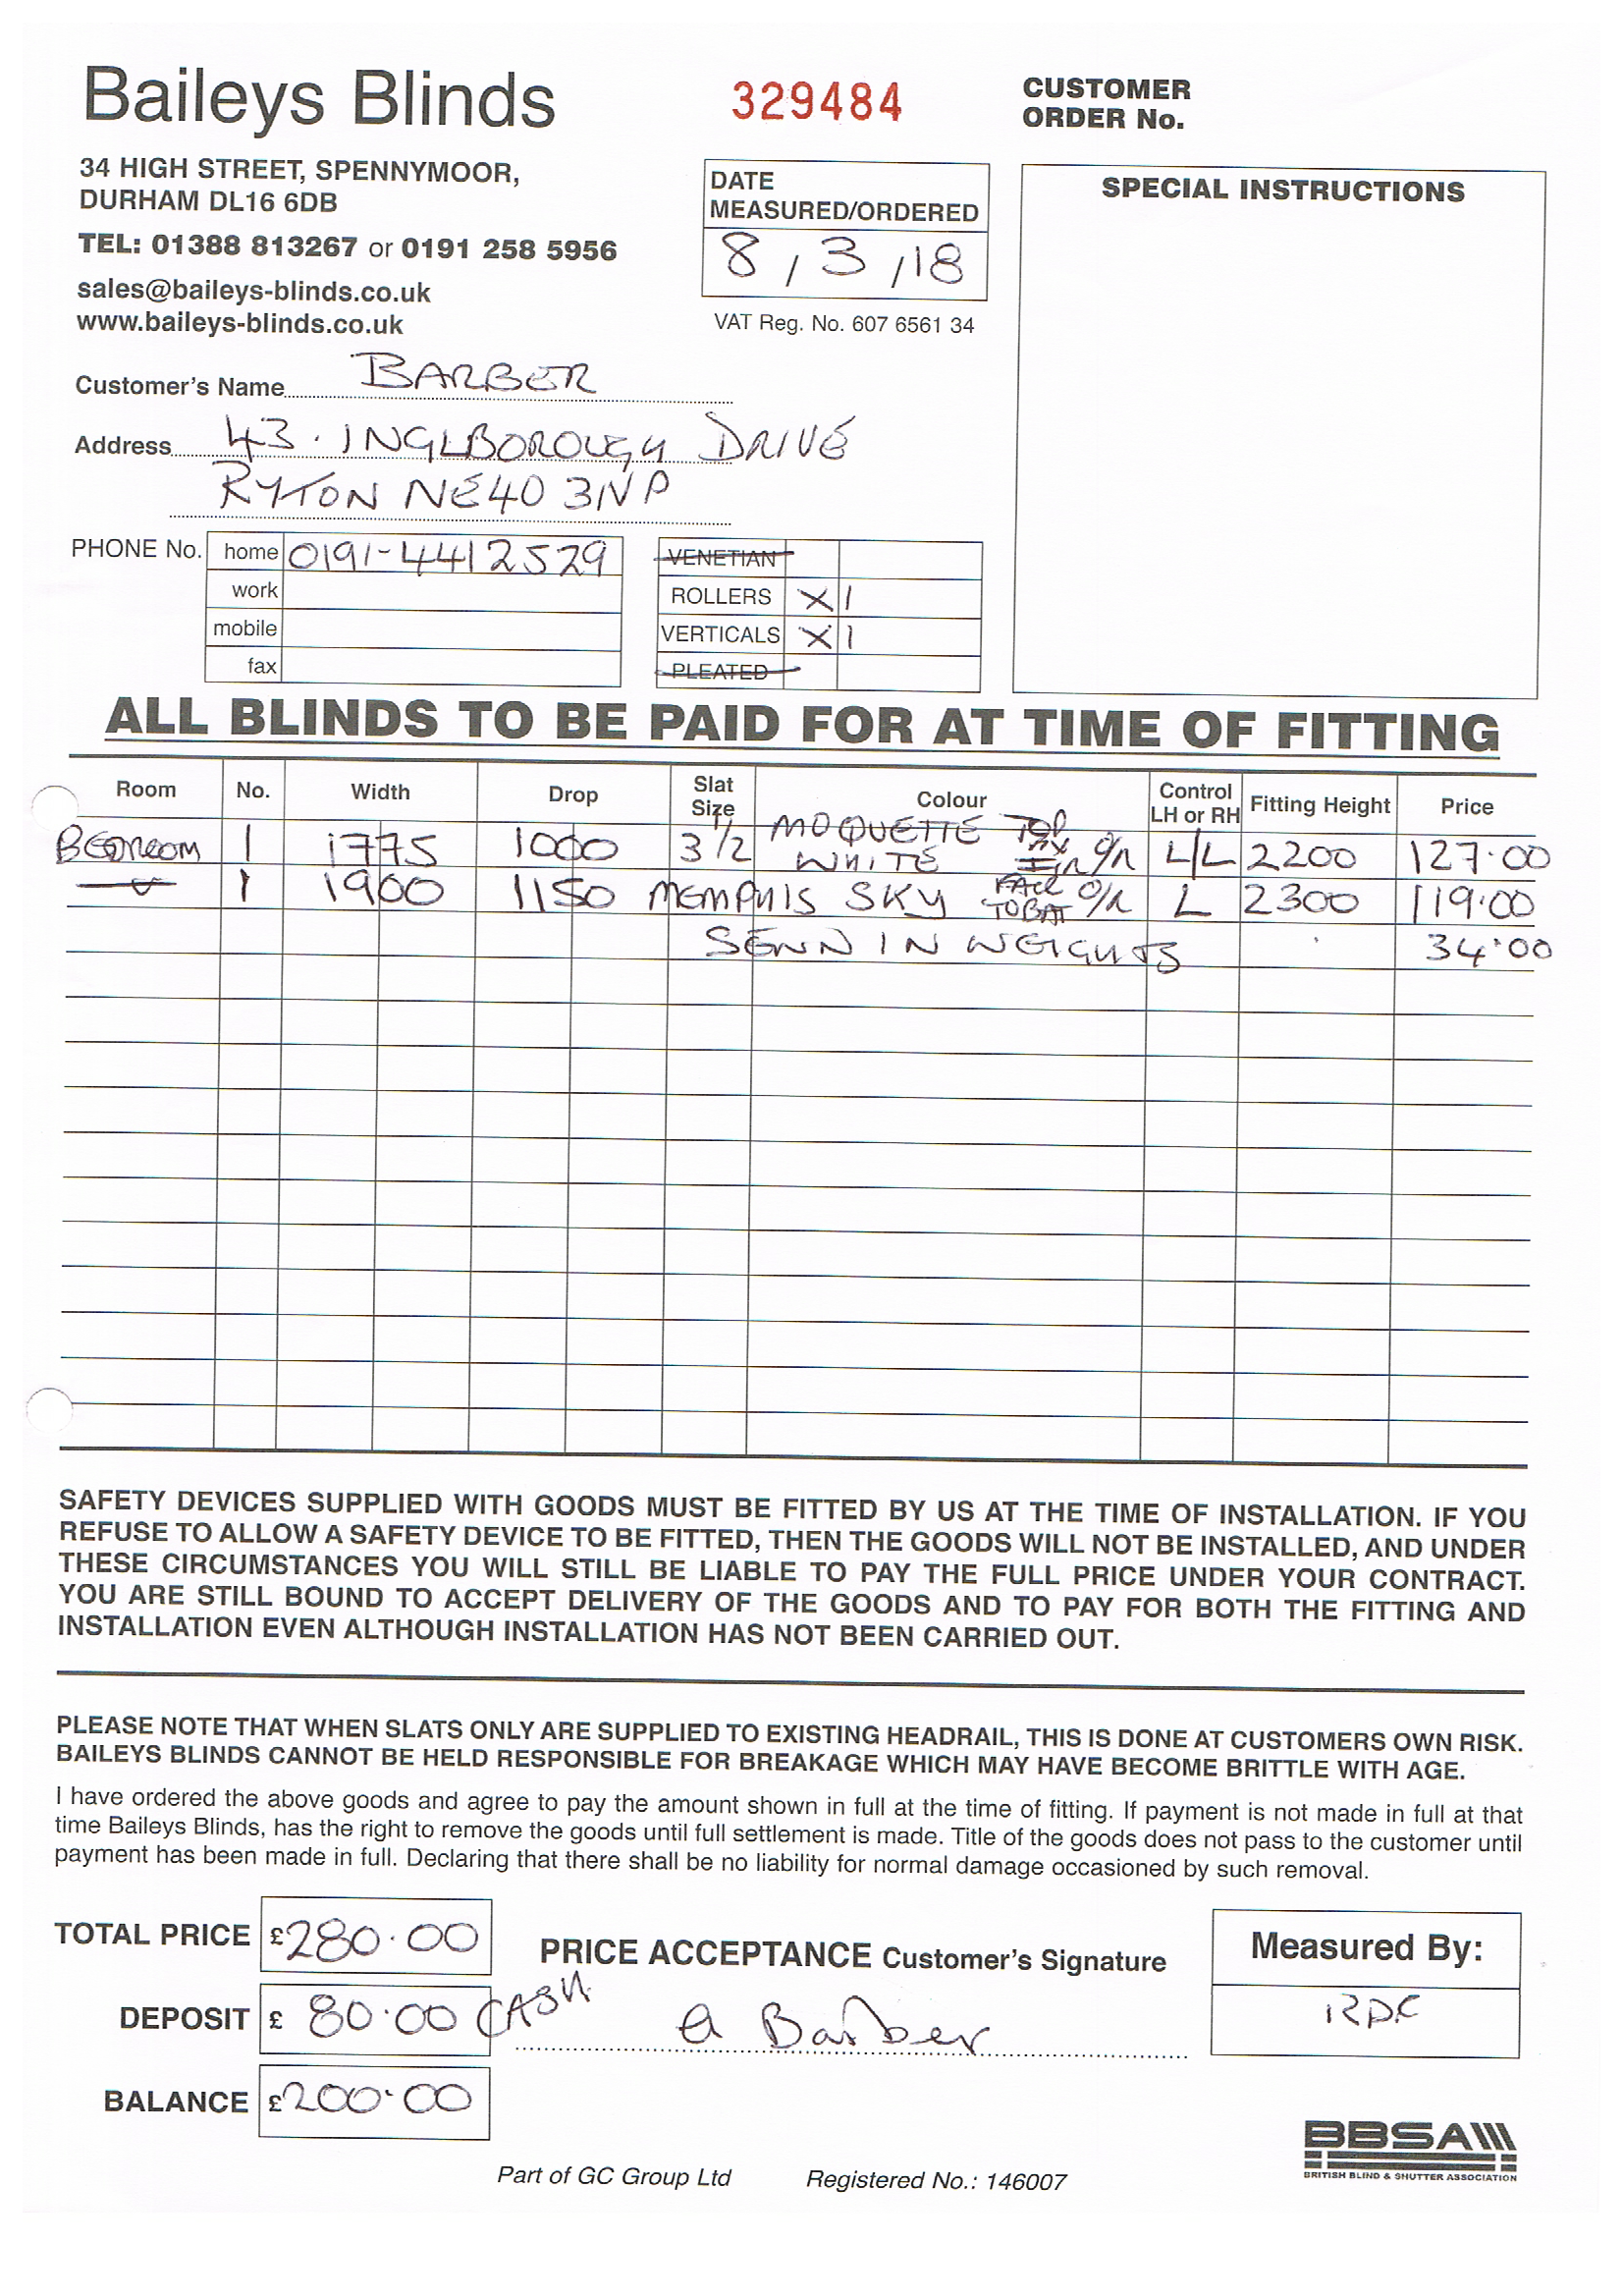 Baileys Blinds
329484
CUSTOMER
ORDER No.
34 HIGH STREET, SPENNYMOOR,
DURHAM DL16 6DB
TEL: 01388 813267 or 0191 258 5956
sales@baileys-blinds.co.uk
www.baileys-blinds.co.uk
DATE
MEASURED/ORDERED
8 / 3 / 18
VAT Reg. No. 607 6561 34
SPECIAL INSTRUCTIONS
Customer's Name BARBER
Address 43. INGLBOROUGH DRIVE
RYTON NE40 3NP
PHONE No. home 0191-4412529
work
mobile
fax
VENETIAN
ROLLERS X 1
VERTICALS X 1
PLEATED
ALL BLINDS TO BE PAID FOR AT TIME OF FITTING
Room No. Width Drop Slat Size Colour Control LH or RH Fitting Height Price
BEDROOM 1 1775 1000 3 1/2 MOQUETTE WHITE TOP O/R L/L 2200 127.00
1 1900 1150 MEMPHIS SKY O/R L 2300 119.00
SEWN IN WEIGHTS 34.00
SAFETY DEVICES SUPPLIED WITH GOODS MUST BE FITTED BY US AT THE TIME OF INSTALLATION. IF YOU
REFUSE TO ALLOW A SAFETY DEVICE TO BE FITTED, THEN THE GOODS WILL NOT BE INSTALLED, AND UNDER
THESE CIRCUMSTANCES YOU WILL STILL BE LIABLE TO PAY THE FULL PRICE UNDER YOUR CONTRACT.
YOU ARE STILL BOUND TO ACCEPT DELIVERY OF THE GOODS AND TO PAY FOR BOTH THE FITTING AND
INSTALLATION EVEN ALTHOUGH INSTALLATION HAS NOT BEEN CARRIED OUT.
PLEASE NOTE THAT WHEN SLATS ONLY ARE SUPPLIED TO EXISTING HEADRAIL, THIS IS DONE AT CUSTOMERS OWN RISK.
BAILEYS BLINDS CANNOT BE HELD RESPONSIBLE FOR BREAKAGE WHICH MAY HAVE BECOME BRITTLE WITH AGE.
I have ordered the above goods and agree to pay the amount shown in full at the time of fitting. If payment is not made in full at that
time Baileys Blinds, has the right to remove the goods until full settlement is made. Title of the goods does not pass to the customer until
payment has been made in full. Declaring that there shall be no liability for normal damage occasioned by such removal.
TOTAL PRICE £280.00
PRICE ACCEPTANCE Customer's Signature
Measured By:
DEPOSIT £ 80.00 CASH
a Barber
RDC
BALANCE £200.00
BBSA
BRITISH BLIND & SHUTTER ASSOCIATION
Part of GC Group Ltd Registered No.: 146007